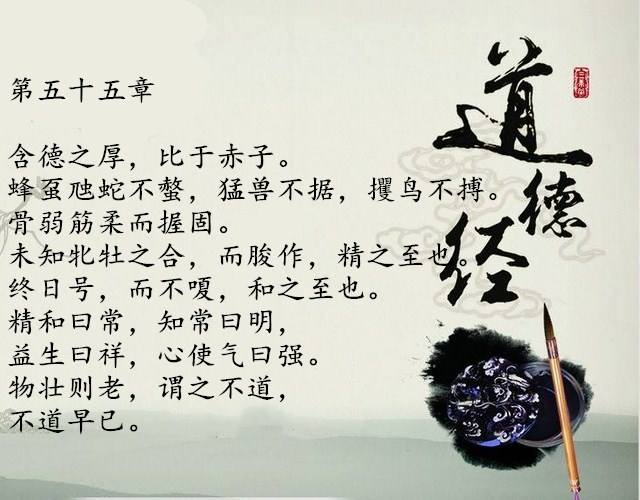 第五十五章
含德之厚，比于赤子。
蜂虿虺蛇不螫，猛兽不据，攫鸟不搏。
骨弱筋柔而握固。
未知牝牡之合，而朘作，精之至也。
终日号，而不嗄，和之至也。
精和曰常，知常曰明，
益生曰祥，心使气曰强。
物壮则老，谓之不道，
不道早已。
道德经